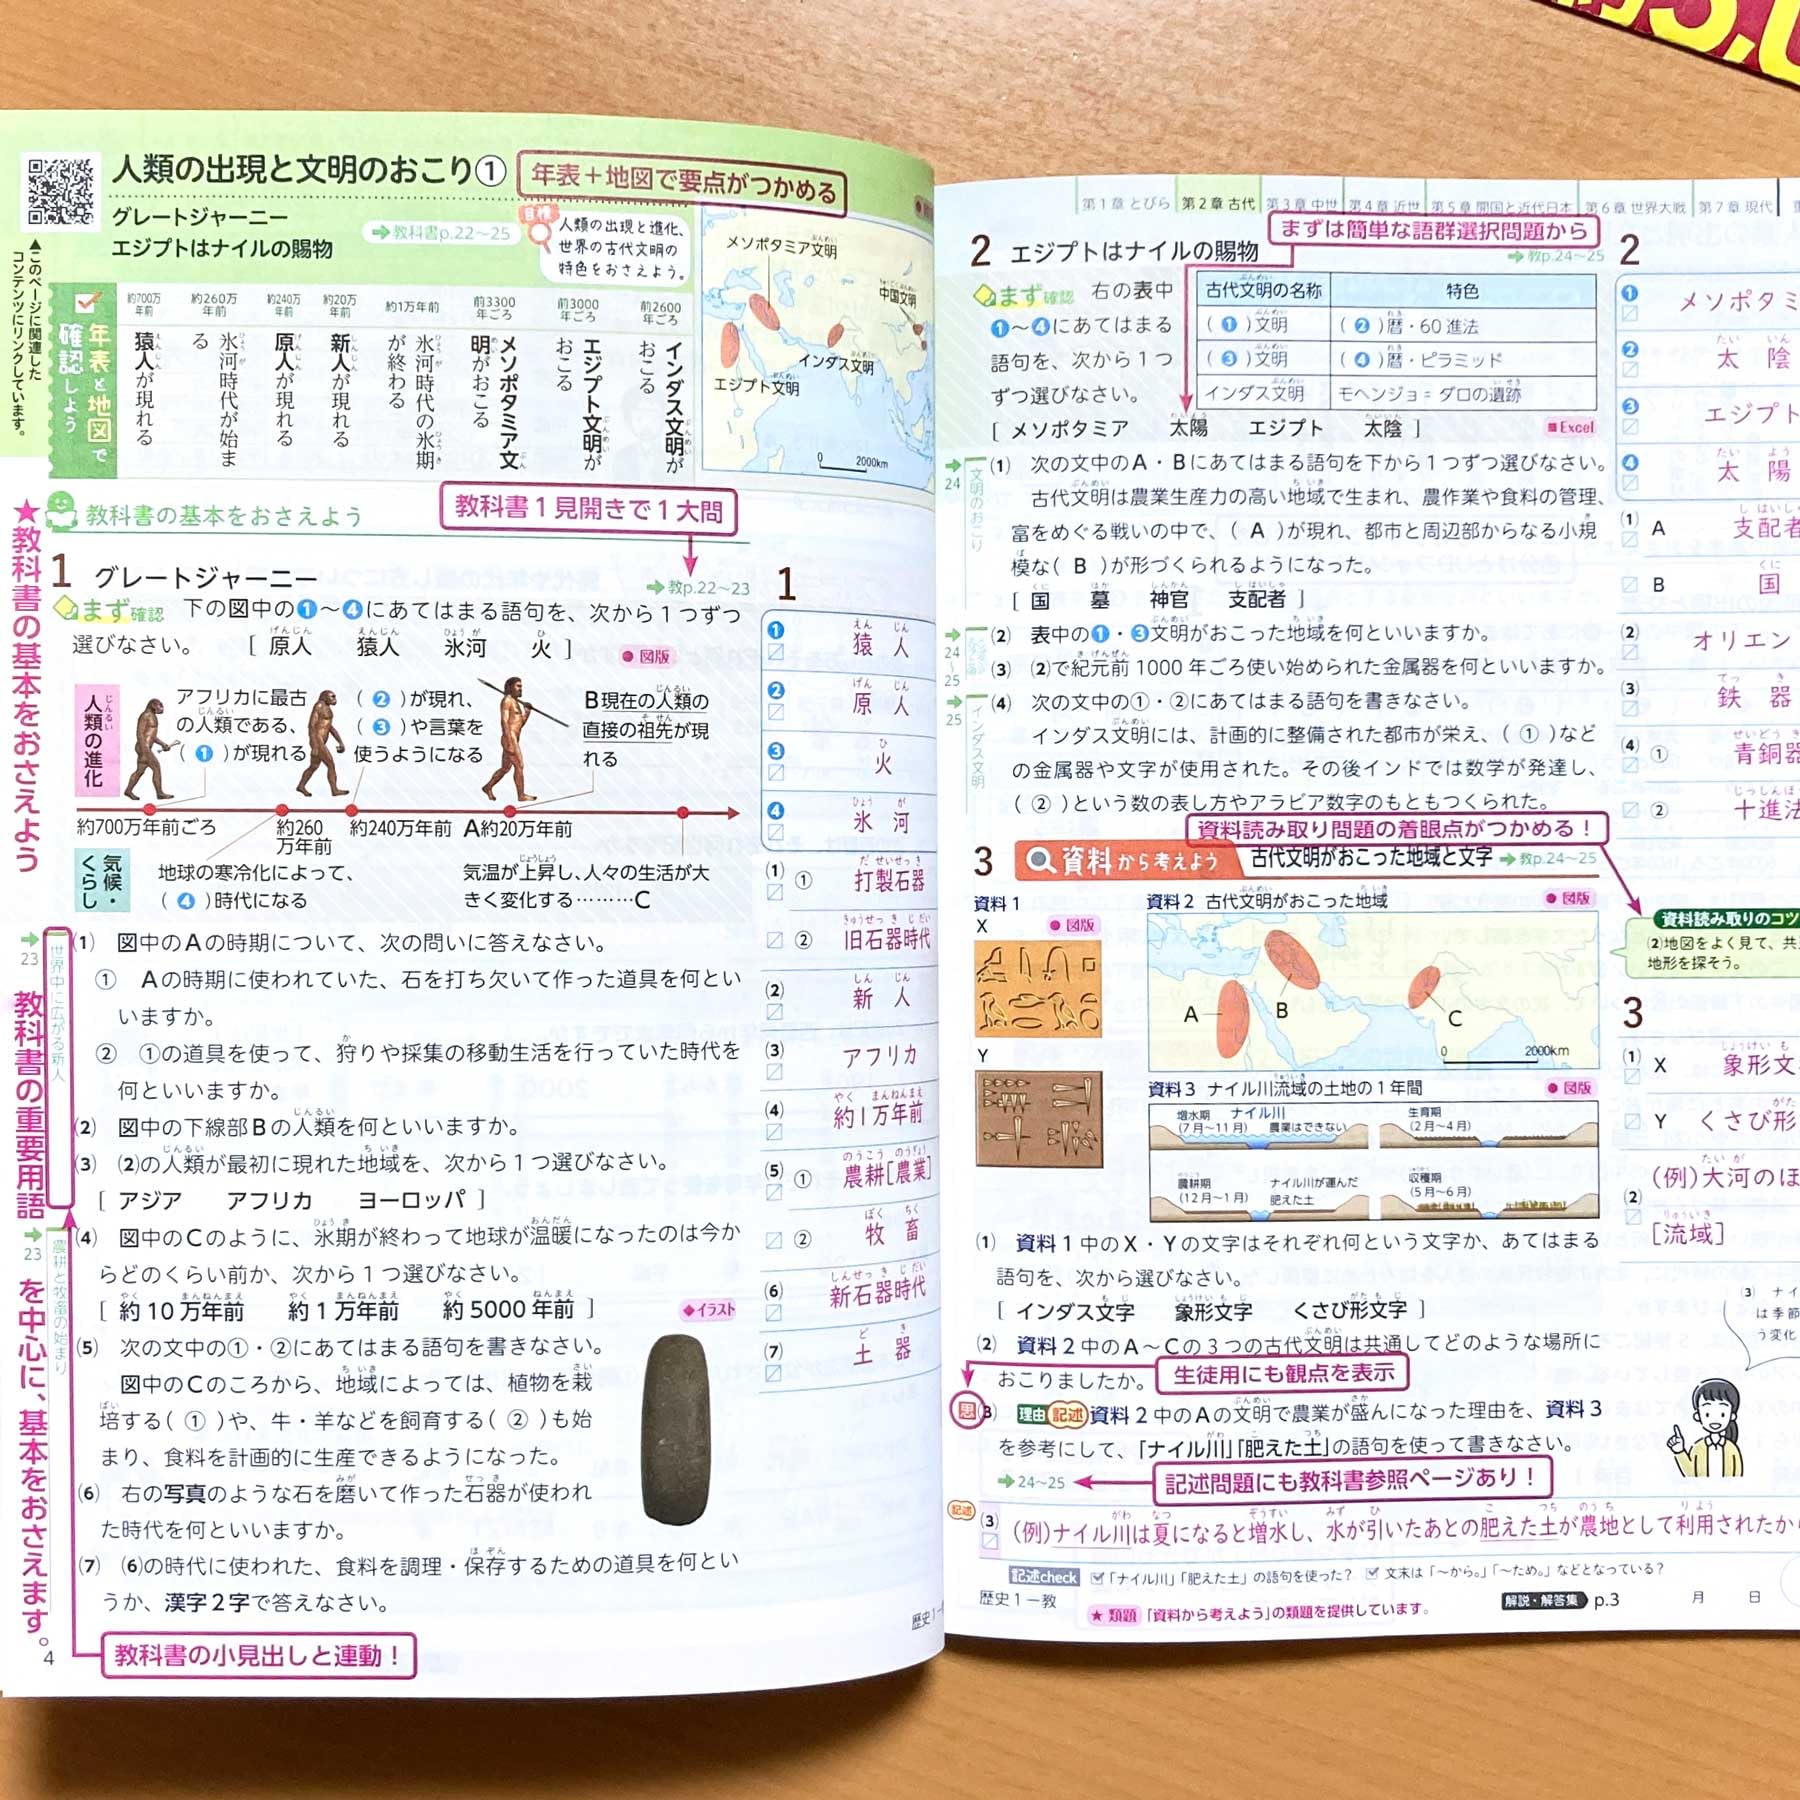 人類の出現と文明のおこり①
年表＋地図で要点がつかめる
グレートジャーニー
エジプトはナイルの賜物
➔教科書p.22～25
目標
人類の出現と進化、
世界の古代文明の
特色をおさえよう。
▲このページに関連した
コンテンツにリンクしています。
年表と地図で
確認しよう
約700万年前
猿人が現れる
約260万年前
氷河時代が始まる
約240万年前
原人が現れる
約20万年前
新人が現れる
約1万年前
氷河時代の氷期が終わる
前3300年ごろ
メソポタミア文明がおこる
前3000年ごろ
エジプト文明がおこる
前2600年ごろ
インダス文明がおこる
メソポタミア文明
中国文明
インダス文明
エジプト文明
0 2000km
★教科書の基本をおさえよう
教科書の重要用語を中心に、基本をおさえます。
教科書の基本をおさえよう
教科書１見開きで１大問
1 グレートジャーニー
➔教p.22～23
まず確認 下の図中の❶～❹にあてはまる語句を、次から１つずつ
選びなさい。 [ 原人 猿人 氷河 火 ]
●図版
人類の進化
アフリカに最古
の人類である、
( ❶ )が現れる
( ❷ )が現れ、
( ❸ )や言葉を
使うようになる
B現在の人類の
直接の祖先が現
れる
約700万年前ごろ
約260
万年前
約240万年前
A約20万年前
気候・くらし
地球の寒冷化によって、
( ❹ )時代になる
気温が上昇し、人々の生活が大
きく変化する………C
➔23
世界中に広がる新人
(1) 図中のＡの時期について、次の問いに答えなさい。
① Ａの時期に使われていた、石を打ち欠いて作った道具を何とい
いますか。
② ①の道具を使って、狩りや採集の移動生活を行っていた時代を
何といいますか。
(2) 図中の下線部Ｂの人類を何といいますか。
(3) (2)の人類が最初に現れた地域を、次から１つ選びなさい。
[ アジア アフリカ ヨーロッパ ]
➔23
農耕と牧畜の始まり
(4) 図中のＣのように、氷期が終わって地球が温暖になったのは今か
らどのくらい前か、次から１つ選びなさい。
[ 約10万年前 約１万年前 約5000年前 ]
◆イラスト
(5) 次の文中の①・②にあてはまる語句を書きなさい。
図中のＣのころから、地域によっては、植物を栽
培する( ① )や、牛・羊などを飼育する( ② )も始
まり、食料を計画的に生産できるようになった。
(6) 右の写真のような石を磨いて作った石器が使われ
た時代を何といいますか。
(7) (6)の時代に使われた、食料を調理・保存するための道具を何とい
うか、漢字２字で答えなさい。
教科書の小見出しと連動！
4
歴史1－
1
❶ 猿人
❷ 原人
❸ 火
❹ 氷河
(1) ① 打製石器
② 旧石器時代
(2) 新人
(3) アフリカ
(4) 約１万年前
(5) ① 農耕[農業]
② 牧畜
(6) 新石器時代
(7) 土器
第1章 とびら
第2章 古代
第3章 中世
第4章 近世
第5章 開国と近代日本
第6章 世界大戦
第7章 現代
まずは簡単な語群選択問題から
2 エジプトはナイルの賜物
➔教p.24～25
まず確認 右の表中
❶～❹にあてはまる
語句を、次から１つ
ずつ選びなさい。
古代文明の名称 特色
( ❶ )文明 ( ❷ )暦・60進法
( ❸ )文明 ( ❹ )暦・ピラミッド
インダス文明 モヘンジョ＝ダロの遺跡
[ メソポタミア 太陽 エジプト 太陰 ]
■Excel
➔24
文明のおこり
(1) 次の文中のＡ・Ｂにあてはまる語句を下から１つずつ選びなさい。
古代文明は農業生産力の高い地域で生まれ、農作業や食料の管理、
富をめぐる戦いの中で、( A )が現れ、都市と周辺部からなる小規
模な( B )が形づくられるようになった。
[ 国 墓 神官 支配者 ]
➔24～25
(2) 表中の❶・❸文明がおこった地域を何といいますか。
(3) (2)で紀元前1000年ごろ使い始められた金属器を何といいますか。
➔25
インダス文明
(4) 次の文中の①・②にあてはまる語句を書きなさい。
インダス文明には、計画的に整備された都市が栄え、( ① )など
の金属器や文字が使用された。その後インドでは数学が発達し、
( ② )という数の表し方やアラビア数字のもともつくられた。
資料読み取り問題の着眼点がつかめる！
3 資料から考えよう 古代文明がおこった地域と文字 ➔教p.24～25
資料1
X
●図版
Y
資料2 古代文明がおこった地域
●図版
A
B
C
0 2000km
資料3 ナイル川流域の土地の１年間
●図版
増水期
(7月～11月)
ナイル川
農業はできない
生育期
(2月～4月)
農耕期
(12月～1月)
ナイル川が運んだ
肥えた土
収穫期
(5月～6月)
(1) 資料1中のX・Yの文字はそれぞれ何という文字か、あてはまる
語句を、次から選びなさい。
[ インダス文字 象形文字 くさび形文字 ]
(2) 資料2中のＡ～Ｃの３つの古代文明は共通してどのような場所に
おこりましたか。
生徒用にも観点を表示
思 (3) 理由 記述 資料2中のＡの文明で農業が盛んになった理由を、資料3
を参考にして、「ナイル川」「肥えた土」の語句を使って書きなさい。
➔24～25
記述問題にも教科書参照ページあり！
記述 (3) (例)ナイル川は夏になると増水し、水が引いたあとの肥えた土が農地として利用されたから
記述check ☑「ナイル川」「肥えた土」の語句を使った？ ☑文末は「～から。」「～ため。」などとなっている？
歴史1－教
★類題「資料から考えよう」の類題を提供しています。
解説・解答集 p.3
月 日
2
❶ メソポタミ
❷ 太陰
❸ エジプト
❹ 太陽
(1) A 支配者
B 国
(2) オリエン
(3) 鉄器
(4) ① 青銅器
② 十進法
資料読み取りのコツ
(2)地図をよく見て、共
地形を探そう。
3
(1) X 象形文
Y くさび形
(2) (例)大河のほ
[流域]
(3) ナイ
は季節
う変化